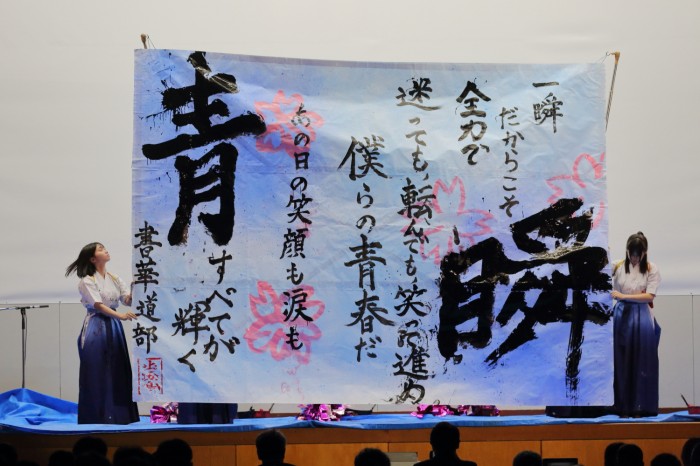 一瞬
だからこそ
瞬
全力で
迷っても、転んでも笑って進め
僕らの青春だ
あの日の笑顔も涙も
青
すべてが
輝く
書華道部